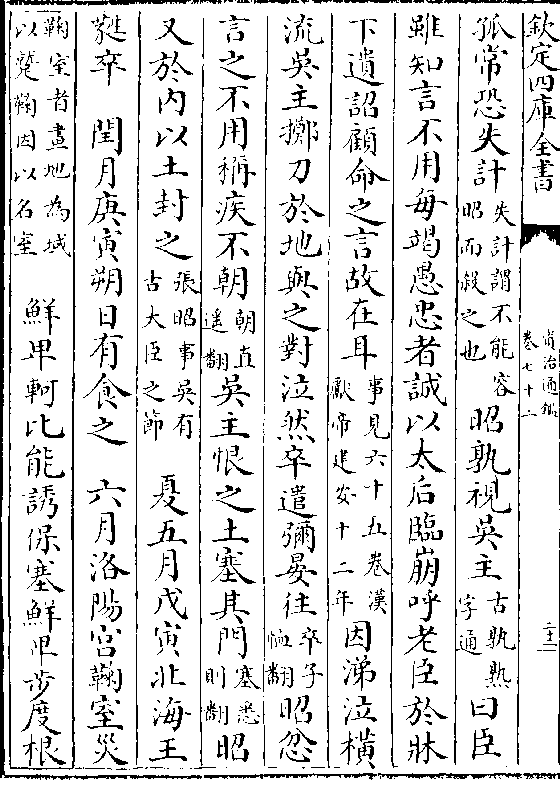 欽定四庫全書
資治通鑑
卷七十二
孤常恐失計失計謂不能容昭而殺之也昭孰視吳主古孰熟字通曰臣
雖知言不用每竭愚忠者誠以太后臨崩呼老臣於牀
下遺詔顧命之言故在耳事見六十五卷漢獻帝建安十二年因涕泣橫
流吳主擲刀於地與之對泣然卒遣彌晏往卒子恤翻昭忿
言之不用稱疾不朝朝直遥翻吳主恨之土塞其門塞悉則翻昭
又於内以土封之張昭事吳有古大臣之節 夏五月戊寅北海王
蕤卒 閏月庚寅朔日有食之 六月洛陽宫鞠室災
鞠室者畫地為域以蹵鞠因以名室 鮮卑軻比能誘保塞鮮卑步度根